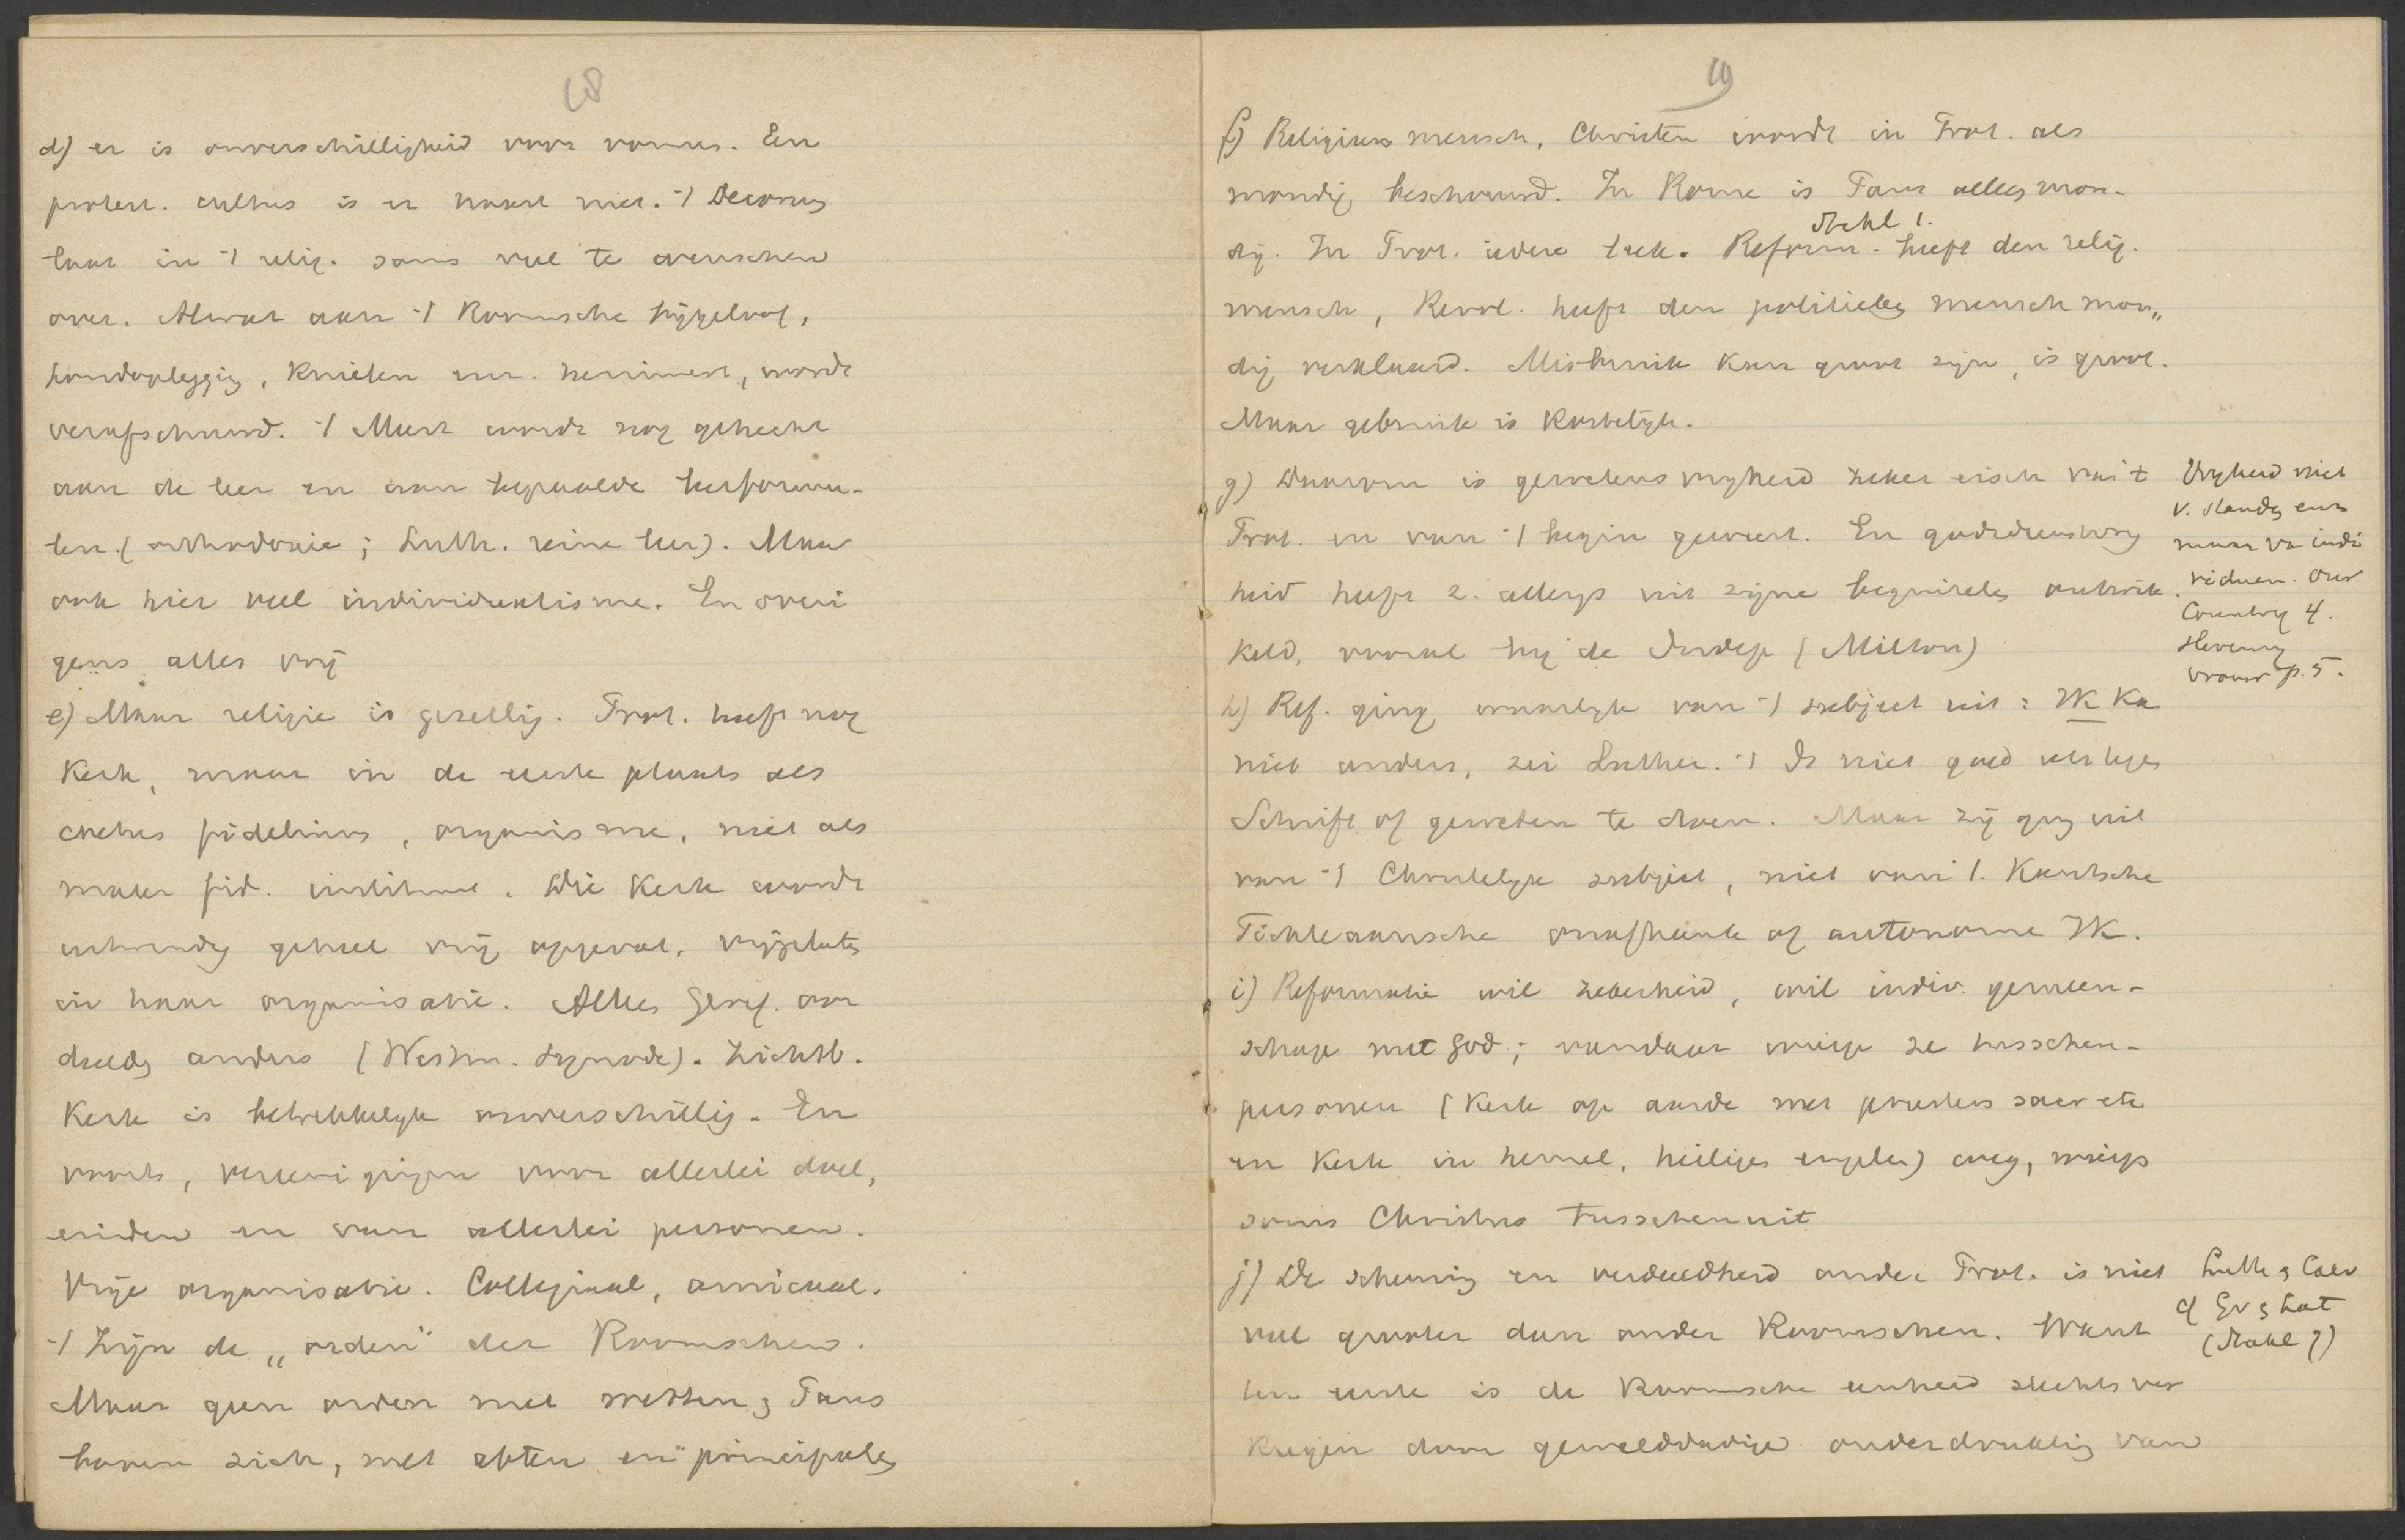 18
d) er is onverschilligheid voor vormen. Een
protest. cultus is er haast niet. -/ Decorum
laat in -/ relig. soms veel te wenschen
over. Alwat aan -/ Roomsche bijgeloof,
handoplegging, knielen enz. herinnert, wordt
verafschuwd. -/ Meest wordt nog gehecht
aan de leer en aan bepaalde leerformu-
len. (orthodoxie; Luth. reine leer). Maar
ook hier veel individualisme. En overi
gens alles vrij
e) Maar religie is gezellig. Prot. heeft nog
Kerk, maar in de eerste plaats als
coetus fidelium, organisme, niet als
mater fid. instituut. Die Kerk wordt
inwendig geheel vrij opgevat, vrijgelaten
in haar organisatie. Alles Geref. oor
deelden anders (Westm. Synode). Zichtb.
Kerk is betrekkelijk onverschillig. En
voorts, vereenigingen voor allerlei doel,
einden en van allerlei personen.
Vrije organisatie. Collegiaal, amicaal.
-/ Zijn de „orden" der Roomschen.
Maar geen orden met wetten, Paus
boven zich, met abten en principalen
19
f) Religieus mensch, Christen wordt in Prot. als
mondig beschouwd. In Rome is Paus alleen mon-
Stahl 1.
dig. In Prot. iedere leek. Reform. heeft den relig.
mensch, Revol. heeft den politieken mensch mon„
dig verklaard. Misbruik kan groot zijn, is groot.
Maar gebruik is kostelijk.
g) Daarom is gewetensvrijheid zeker eisch van 't
Prot. en van -/ begin geweest. En godsdienstvrij
heid heeft z. allengs uit zijne beginselen ontwik
keld, vooral bij de Indep (Milton)
Vrijheid niet
v. standen enz
maar van indi
viduen. Our
Country 4.
h) Ref. ging waarlijk van -/ subject uit: IK Kan
niet anders, zei Luther. -/ Is niet goed iets tegen
Schrift of geweten te doen. Maar zij ging uit
van -/ Christelijk subject, niet van /. Kantsche
Fichteaansche onafhankl of autonome IK.
i) Reformatie wil zekerheid, wil indiv. gemeen-
schap met God; vandaar wierp ze tusschen-
personen (Kerk op aarde met priesters sacr etc
en Kerk in hemel, heiligen engelen) weg, wierp
soms Christus tusschenuit
j) De scheuring en verdeeldheid onder Prot. is niet
veel grooter dan onder Roomschen. Want
ten eerste is de Roomsche eenheid slechts ver
kregen door gewelddadige onderdrukking van
Luth & Calv
of Ev & Kat
(Stahl 7)